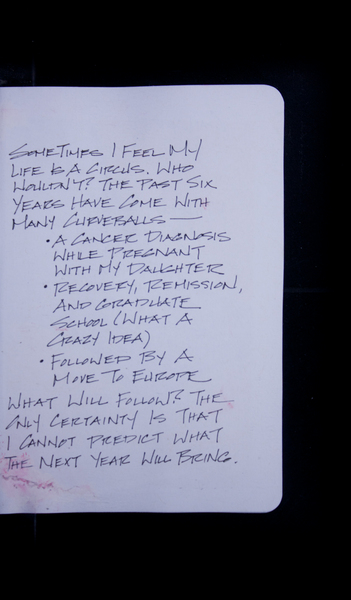 SOMETIMES I FEEL MY
LIFE IS A CIRCUS. WHO
WOULDN'T? THE PAST SIX
YEARS HAVE COME WITH
MANY CURVEBALLS —
• A CANCER DIAGNOSIS
WHILE PREGNANT
WITH MY DAUGHTER
• RECOVERY, REMISSION,
AND GRADUATE
SCHOOL (WHAT A
CRAZY IDEA)
• FOLLOWED BY A
MOVE TO EUROPE
WHAT WILL FOLLOW? THE
ONLY CERTAINTY IS THAT
I CANNOT PREDICT WHAT
THE NEXT YEAR WILL BRING.